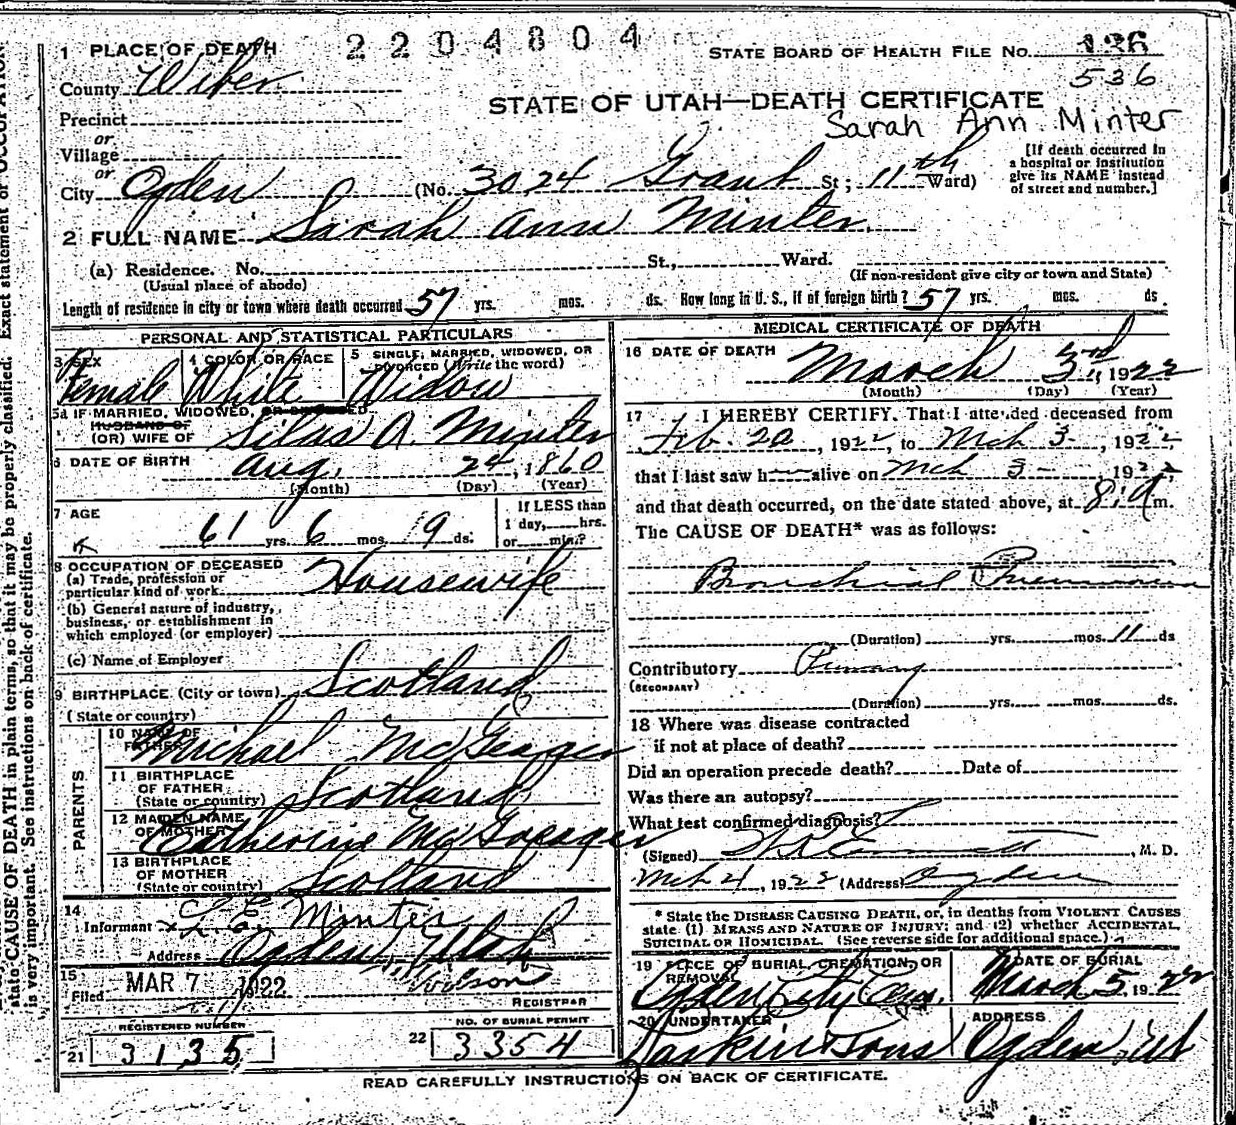 1 PLACE OF DEATH
2204804
STATE BOARD OF HEALTH FILE NO. 136
536
County Weber
STATE OF UTAH—DEATH CERTIFICATE
Precinct
Sarah Ann Minter
or
Village
or
City Ogden (No. 3024 Grant St; 11th Ward)
[If death occurred in
a hospital or institution
give its NAME instead
of street and number.]
2 FULL NAME Sarah Ann Minter
(a) Residence. No. St., Ward.
(Usual place of abode) (If non-resident give city or town and State)
Length of residence in city or town where death occurred 57 yrs. mos. ds. How long in U. S., if of foreign birth? 57 yrs. mos. ds.
PERSONAL AND STATISTICAL PARTICULARS
3 SEX Female
4 COLOR OR RACE White
5 SINGLE, MARRIED, WIDOWED, OR
DIVORCED (Write the word)
Widow
5a IF MARRIED, WIDOWED, OR DIVORCED
HUSBAND OF
(OR) WIFE OF Silas A. Minter
6 DATE OF BIRTH Aug. 24, 1860
(Month) (Day) (Year)
7 AGE
61 yrs. 6 mos. 9 ds.
If LESS than
1 day, hrs.
or min.?
8 OCCUPATION OF DECEASED
(a) Trade, profession or
particular kind of work Housewife
(b) General nature of industry,
business, or establishment in
which employed (or employer)
(c) Name of Employer
9 BIRTHPLACE (City or town) Scotland
(State or country)
PARENTS
10 NAME OF
FATHER Michael
11 BIRTHPLACE
OF FATHER
(State or country) Scotland
12 MAIDEN NAME
OF MOTHER Catherine
13 BIRTHPLACE
OF MOTHER
(State or country) Scotland
14
Informant L. E. Minter
Address Ogden, Utah
15
Filed MAR 7 1922 Wilson
REGISTRAR
REGISTERED NUMBER
21 3135
NO. OF BURIAL PERMIT
22 3354
MEDICAL CERTIFICATE OF DEATH
16 DATE OF DEATH
March 3rd, 1922
(Month) (Day) (Year)
17 I HEREBY CERTIFY. That I attended deceased from
Feb. 20, 1922, to Mch 3, 1922
that I last saw h alive on Mch 3, 1922,
and that death occurred, on the date stated above, at 8 a m.
The CAUSE OF DEATH* was as follows:
Bronchial Pneumonia
(Duration) yrs. mos. 11 ds
Contributory
(SECONDARY)
(Duration) yrs. mos. ds.
18 Where was disease contracted
if not at place of death?
Did an operation precede death? Date of
Was there an autopsy?
What test confirmed diagnosis?
(Signed) , M. D.
Mch 4, 1922 (Address) Ogden
* State the DISEASE CAUSING DEATH, or, in deaths from VIOLENT CAUSES
state (1) MEANS AND NATURE OF INJURY; and (2) whether ACCIDENTAL,
SUICIDAL OR HOMICIDAL. (See reverse side for additional space.)
19 PLACE OF BURIAL, CREMATION, OR
REMOVAL
Ogden City Cem.
DATE OF BURIAL
March 5, 1922
20 UNDERTAKER
Larkin & Sons
ADDRESS
Ogden, Ut
READ CAREFULLY INSTRUCTIONS ON BACK OF CERTIFICATE.
state CAUSE OF DEATH in plain terms, so that it may be properly classified. Exact statement of OCCUPATION
is very important. See instructions on back of certificate.